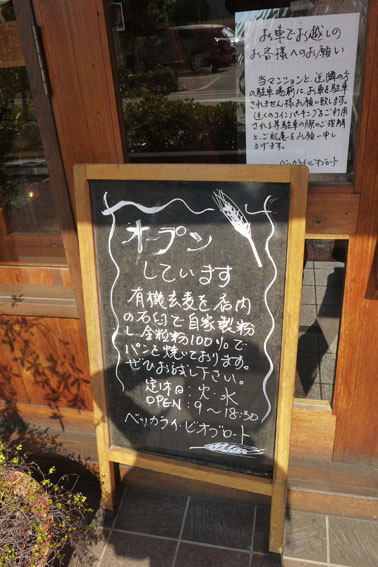 お車でお越しの
お客様へのお願い
当マンションと、近隣の方
の駐車場前に、お車を駐車
されません様お願い致します。
近くのコインパーキングをご利用
される等駐車の際のご理解
と、ご配慮をお願い申し
上げます。
ベッカライ・ビオブロート
オープン
しています
有機玄麦を店内
の石臼で自家製粉
し、全粒粉100%で
パンを焼いております。
ぜひお試し下さい。
定休日:火・水
OPEN:9〜18:30
ベッカライ・ビオブロート